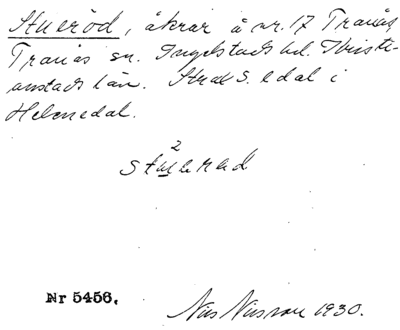 Stueröd, åkrar å nr. 17 Tranås,
Tranås sn. Ingelstads hd. Kristi-
anstads län. Strax S.
Helenedal.
2
Nr 5456.
Nils Nilsson 1930.